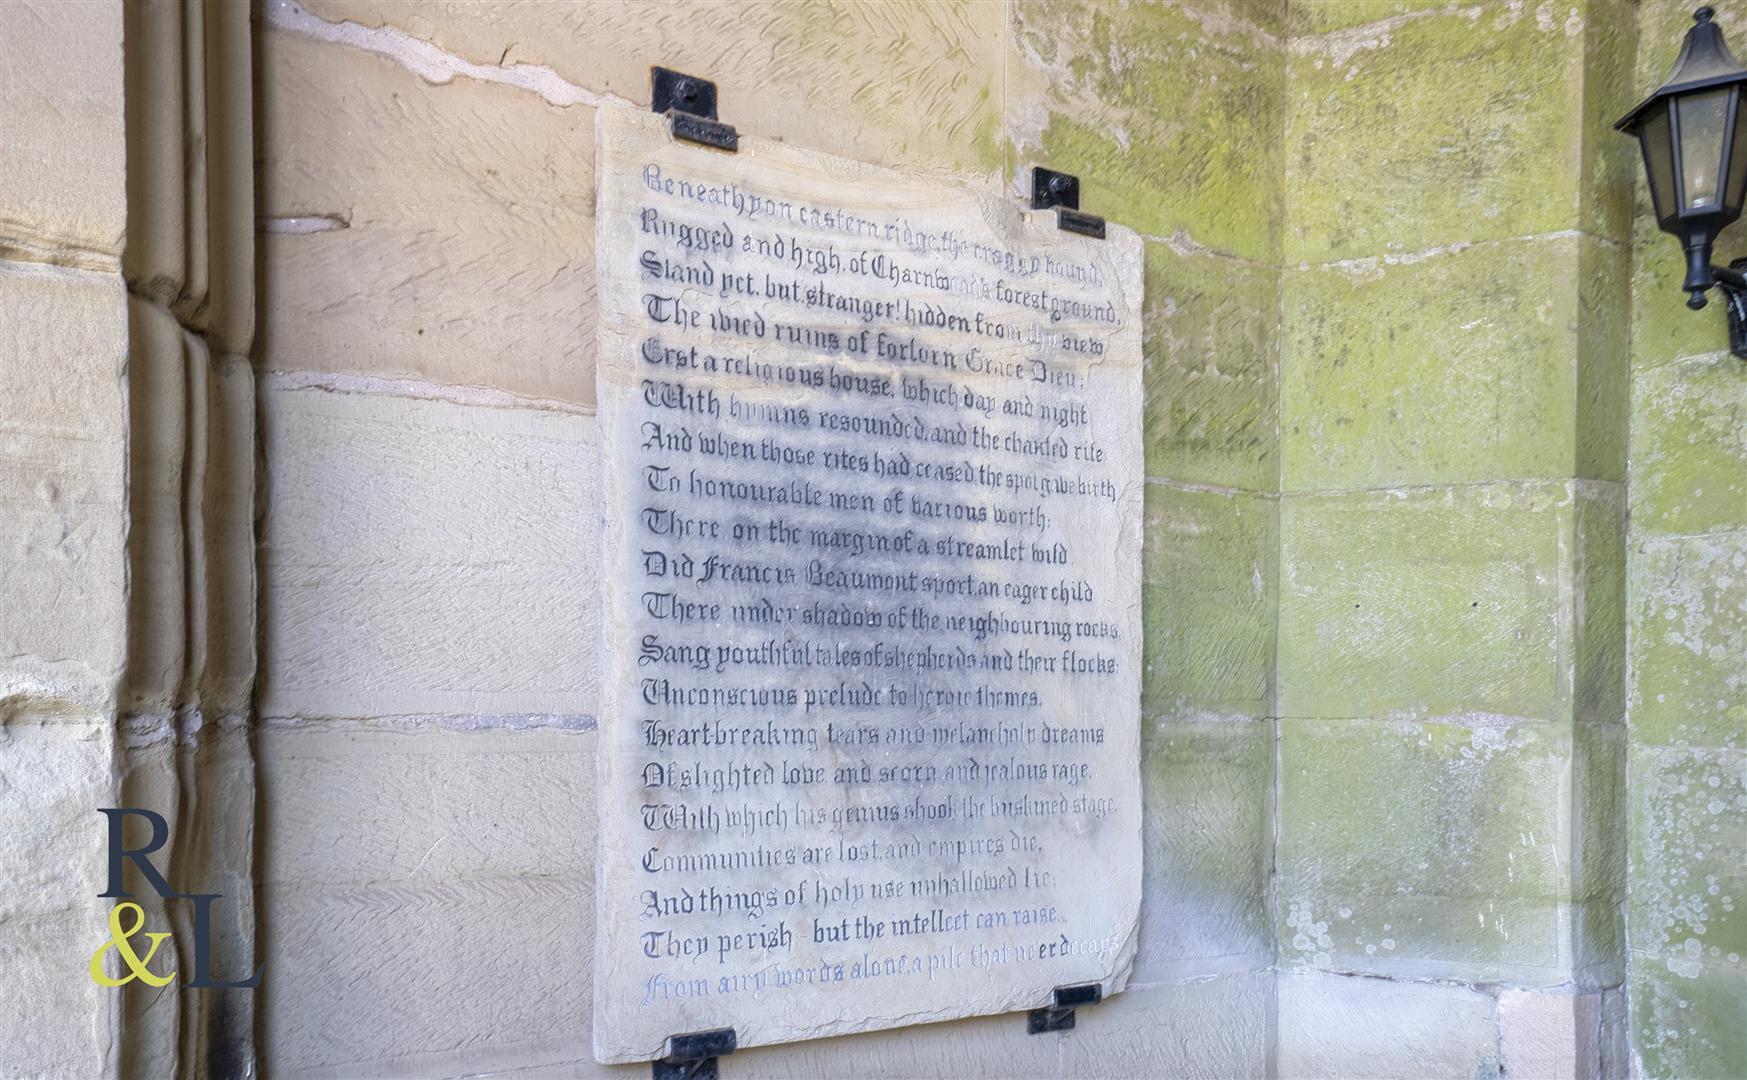 Beneath yon eastern ridge, the craggy bound,
Rugged and high, of Charnwood's forest ground,
Stand yet, but, stranger! hidden from thy view
The ivied ruins of forlorn Grace Dieu;
Erst a religious house, which day and night
With hymns resounded, and the chanted rite
And when those rites had ceased, the spot gave birth
To honourable men of various worth:
There on the margin of a streamlet wild
Did Francis Beaumont sport, an eager child
There under shadow of the neighbouring rocks,
Sang youthful tales of shepherds and their flocks;
Unconscious prelude to heroic themes,
Heart-breaking tears and melancholy dreams
Of slighted love and scorn, and jealous rage,
With which his genius shook the buskined stage.
Communities are lost, and empires die,
And things of holy use unhallowed lie;
They perish but the intellect can raise,
From airy words alone, a pile that ne'er decays
R
& L